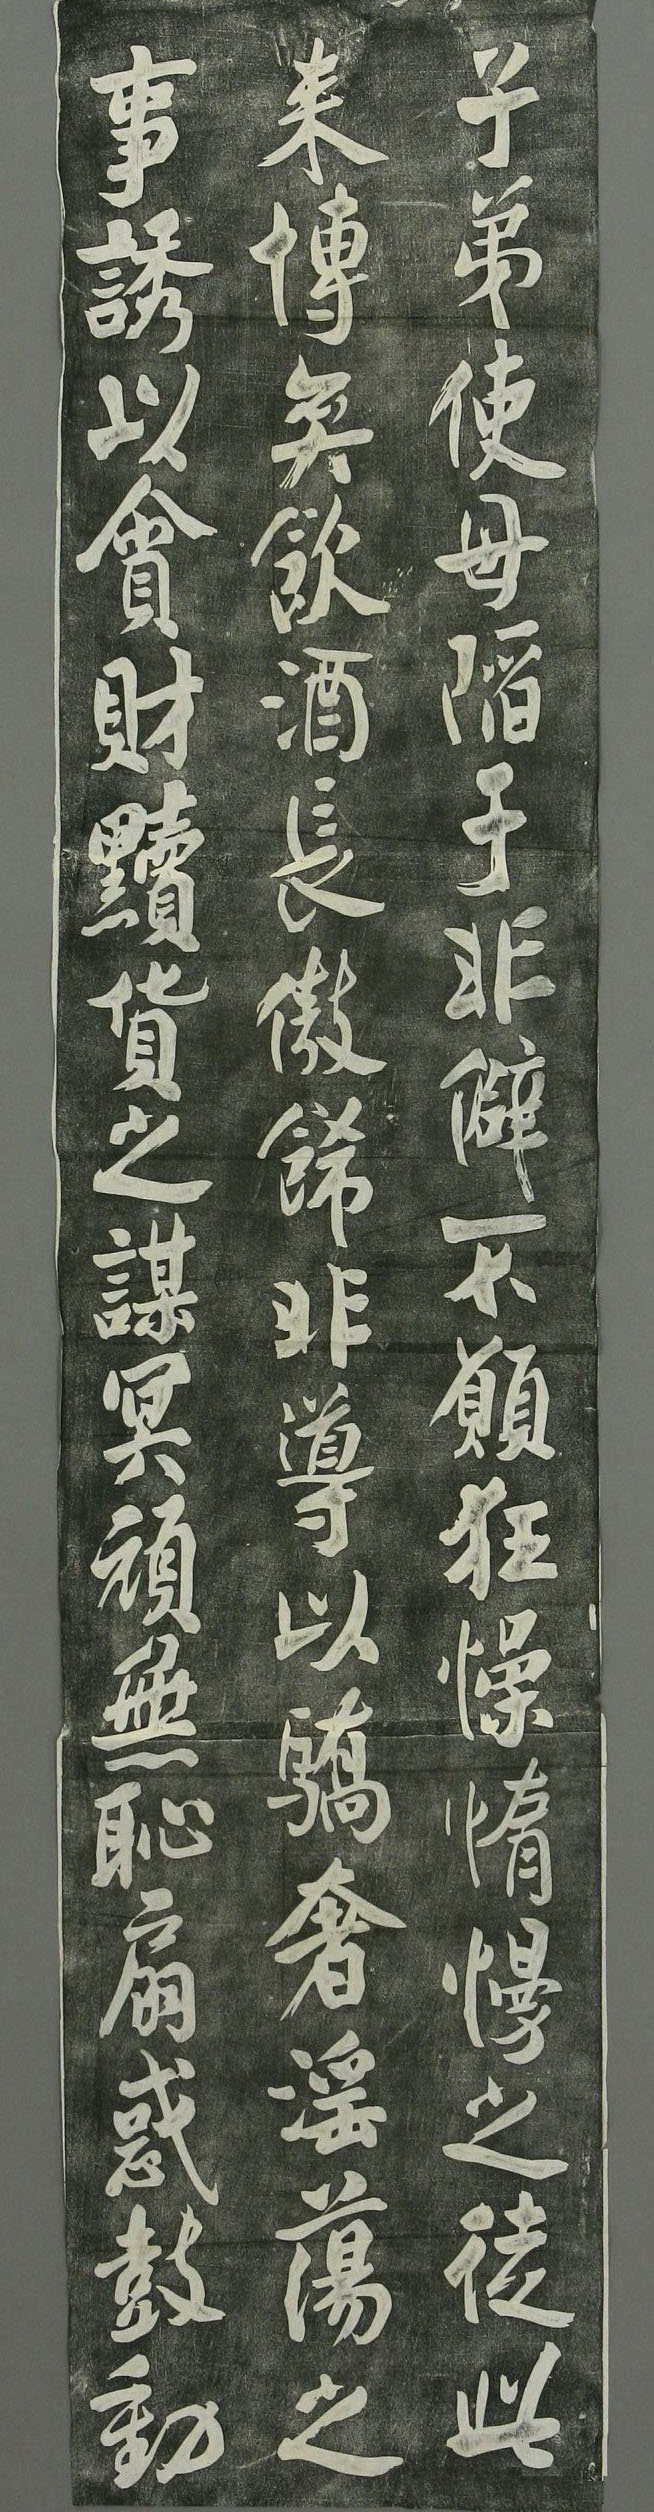 子弟使毋陷于非僻不願狂懆惰慢之徒此
來博矣飲酒長傲飾非導以驕奢淫蕩之
事誘以貪財黷貨之謀冥頑無恥扇惑鼓動